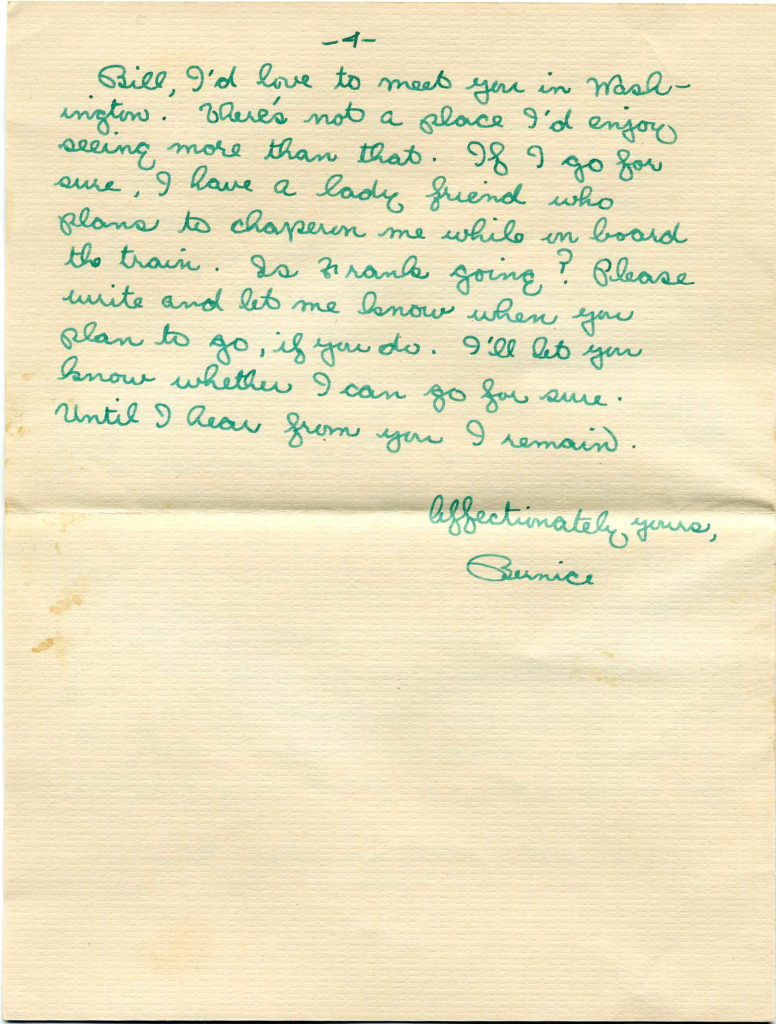 -4-
Bill, I'd love to meet you in Wash-
ington. There's not a place I'd enjoy
seeing more than that. If I go for
sure, I have a lady friend who
plans to chaperon me while on board
the train. Is Frank going? Please
write and let me know when you
plan to go, if you do. I'll let you
know whether I can go for sure.
Until I hear from you I remain.
Affectionately yours,
Bernice